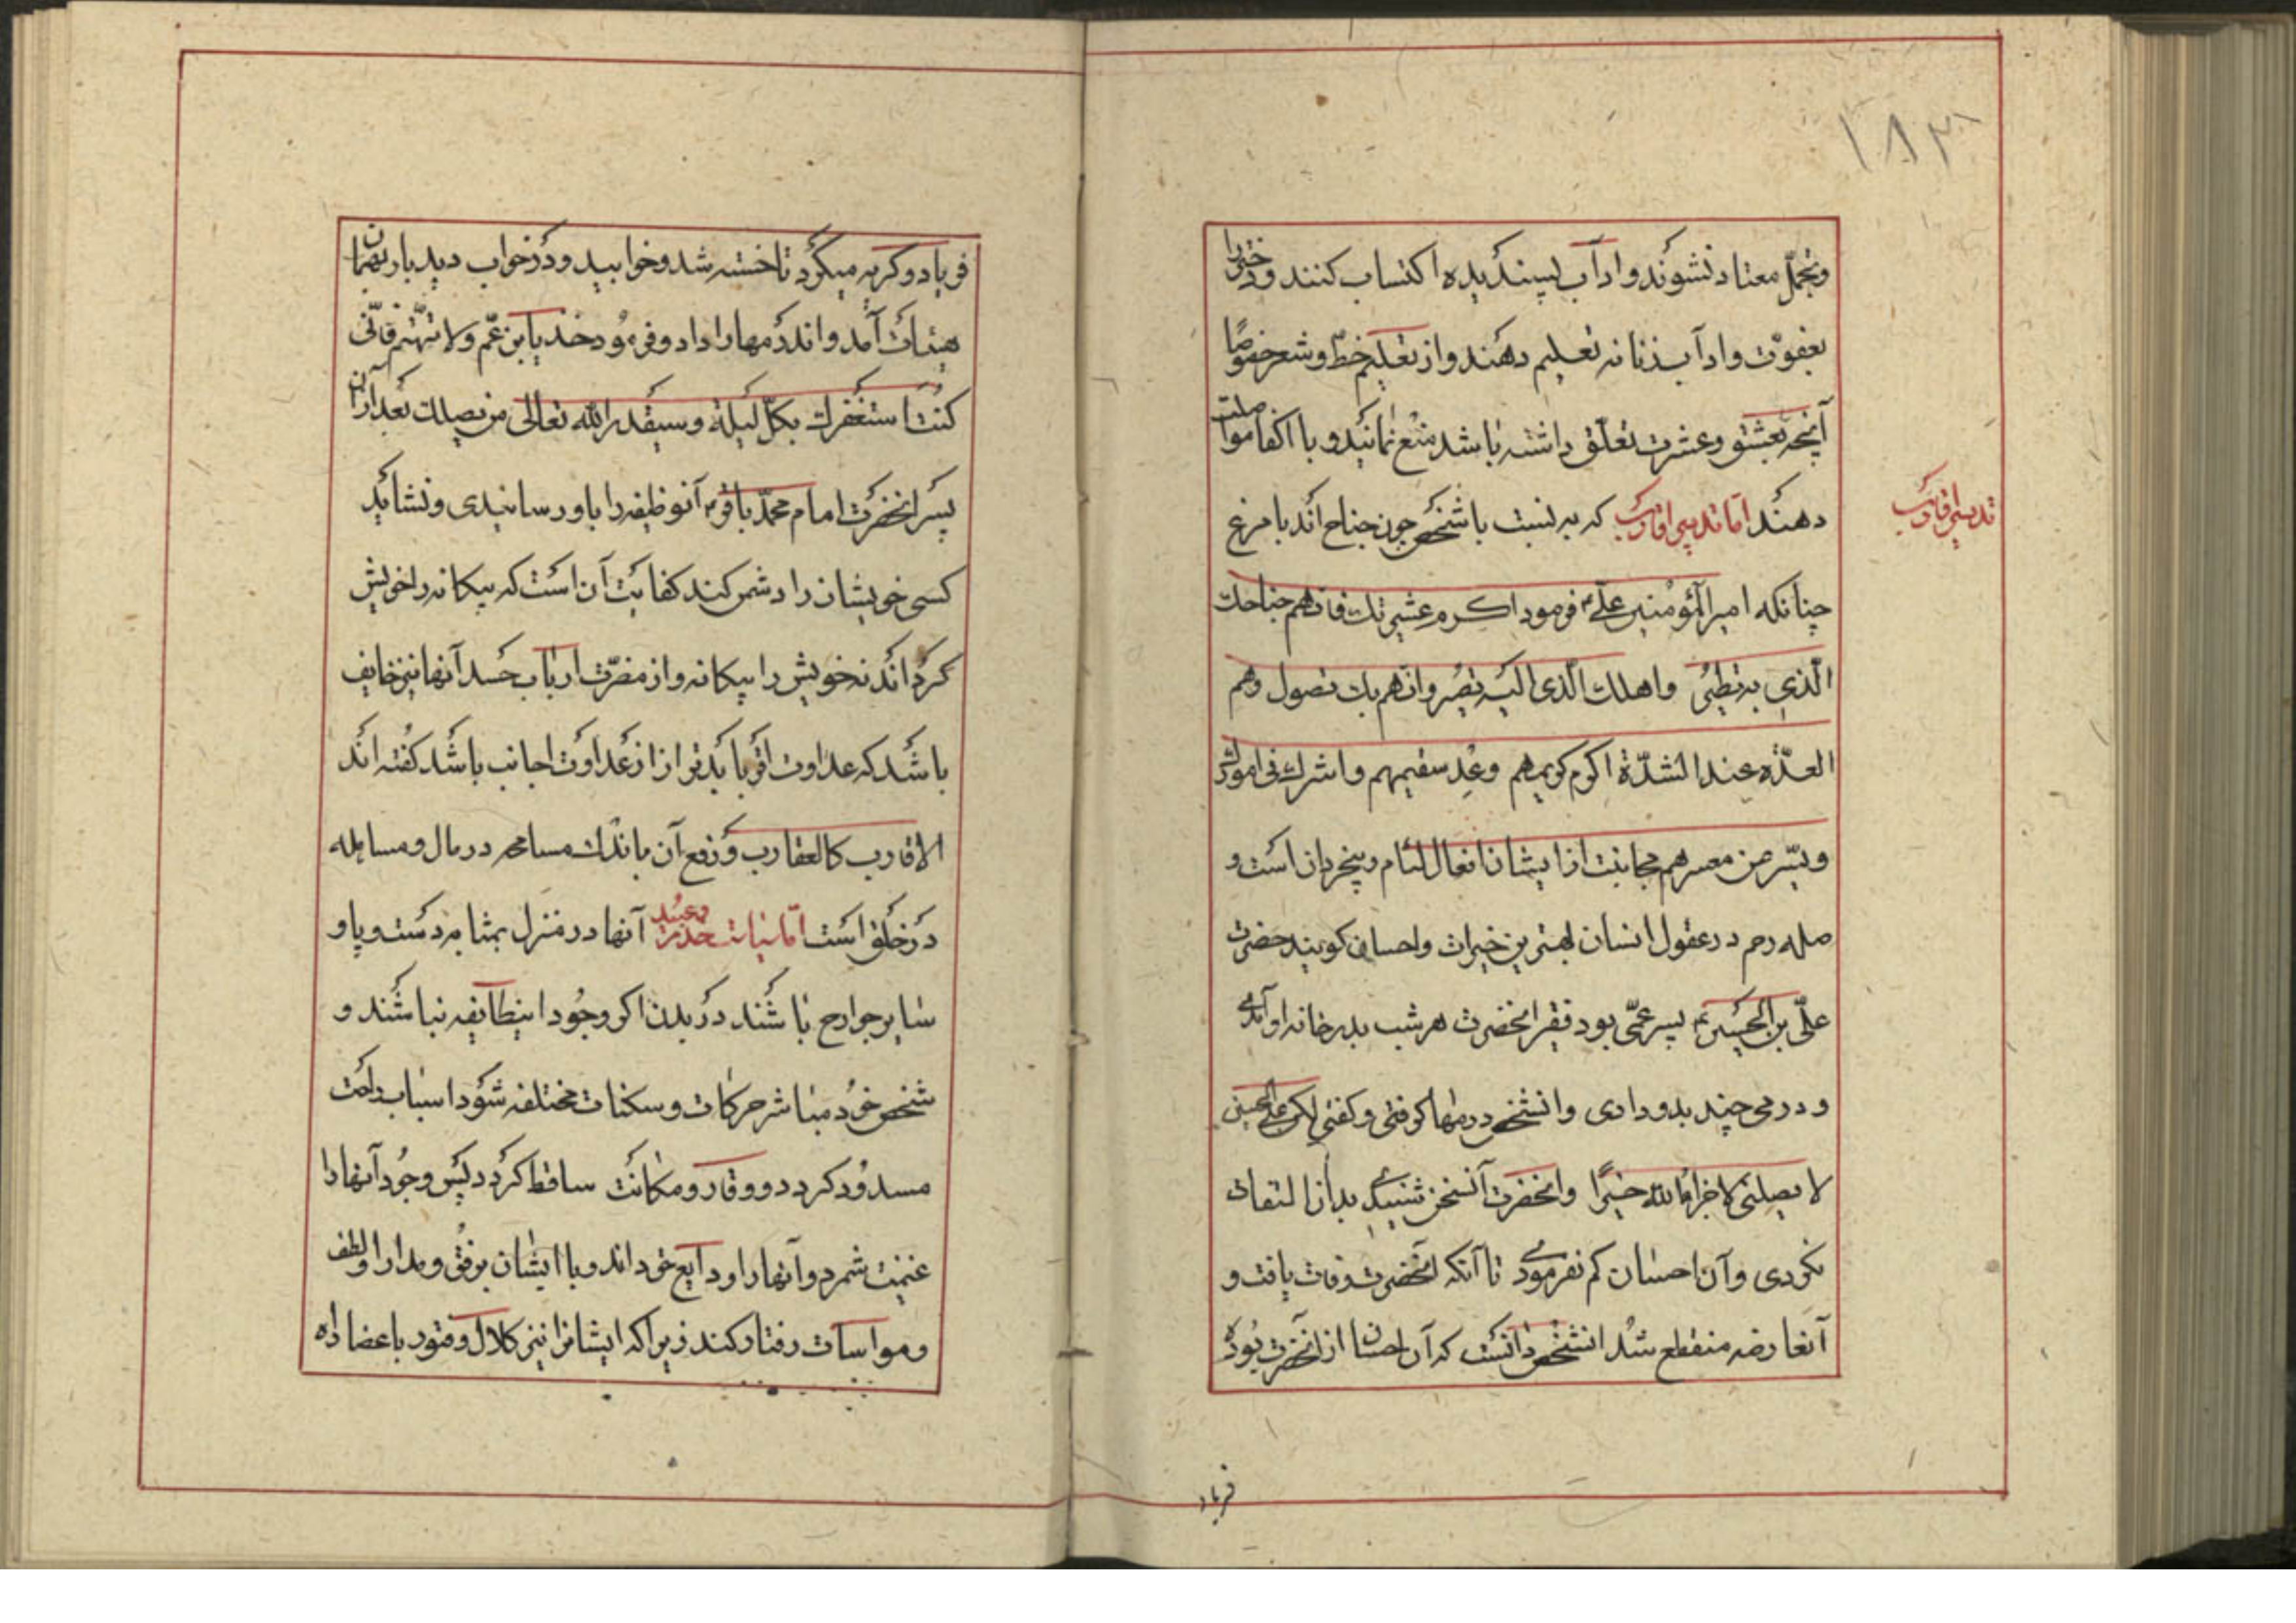 ۱۸۳
وتجمّل معتاد نشوند وآداب پسندیده اکتساب کنند ودختر را
بعفوّت وآداب زنانه تعلیم دهند واز تعلیم خطّ وشعر خصوصًا
آنچه بعشق وعشرت تعلّق داشته باشد منع نمانید وبا اکفا مواصلت
دهند امّا تدبیر اقارب که به نسبت باشخص چون جناح اند بامرغ
تدبیر اقارب
چنانکه امیر المؤمنین علیؑ فرمود اکرم عشیرتک فانهم جناحک
الّذی به تطیر واهلک الّذی الیه تصیر وانهم بک تصول وهم
العدّة عند الشدّة اکرم کریمهم وعد سقیمهم واشرک فی امورک
ویسّر عن معسرهم مجانبت از ایشان افعال لئام وبیخردان است و
صله رحم در عقول انسان بهترین خیرات واحسان کویند حضرت
علیّ بن الحسینؑ پسر عمّی بود فقیر انحضرت هر شب بدر خانه او آمدی
ودرمی چند بدو دادی وانشخص درمها کرفتی وکفتی لکن علی بن الحسین
لا یصلنی لا جزاه الله خیرًا وانحضرت آنسخن شنیدی بدان التفات
نکردی وآن احسان کم نفرمودی تا آنکه انحضرت وفات یافت و
آنعارضه منقطع شد انشخص دانست که آن احسان از انحضرت بوده
فریاد
فریاد وکریه میکرد تا خسته شد وخوابید ودر خواب دید باز بهمان
هیئات آمد واند درمها را داد وفرمود خذ یابن عمّ ولا تتّهم فانّی
کنت استغفرک بکلّ لیلة وسیقدر الله تعالی من یصلک بعد از آن
پسر انحضرت امام محمّد باقرؑ آنوظیفه را باو رسانیدی ونشاید
کسی خویشان را دشمن کند کفایت آن است که بیکانه را خویش
کرداند نه خویش را بیکانه واز مضرّت ارباب حسد آنها نیز خایف
باشد که عداوت اقربا بدتر از از عداوت اجانب باشد کفته اند
الاقارب کالعقارب ودفع آن باندک مسامحه در مال ومسایله
در خلق است امّا سیاست خدم وعبید آنها در منزل بمثابه دست وپا و
سایر جوارح باشند در بدن اکر وجود اینطایفه نباشند و
شخص خود مباشر حرکات وسکنات مختلفه شود اسباب راحت
مسدود کردد ووقار ومکانت ساقط کردد پس وجود آنها را
غنیمت شمرد وآنها را ودایع حق داند وبا ایشان برفق ومدارا ولطف
ومواسات رفتار کند زیرا که ایشانرا نیز کلال وفتور باعضا راه